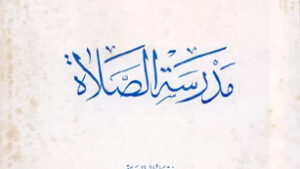 مَدْرَسَة الصَّلَاة